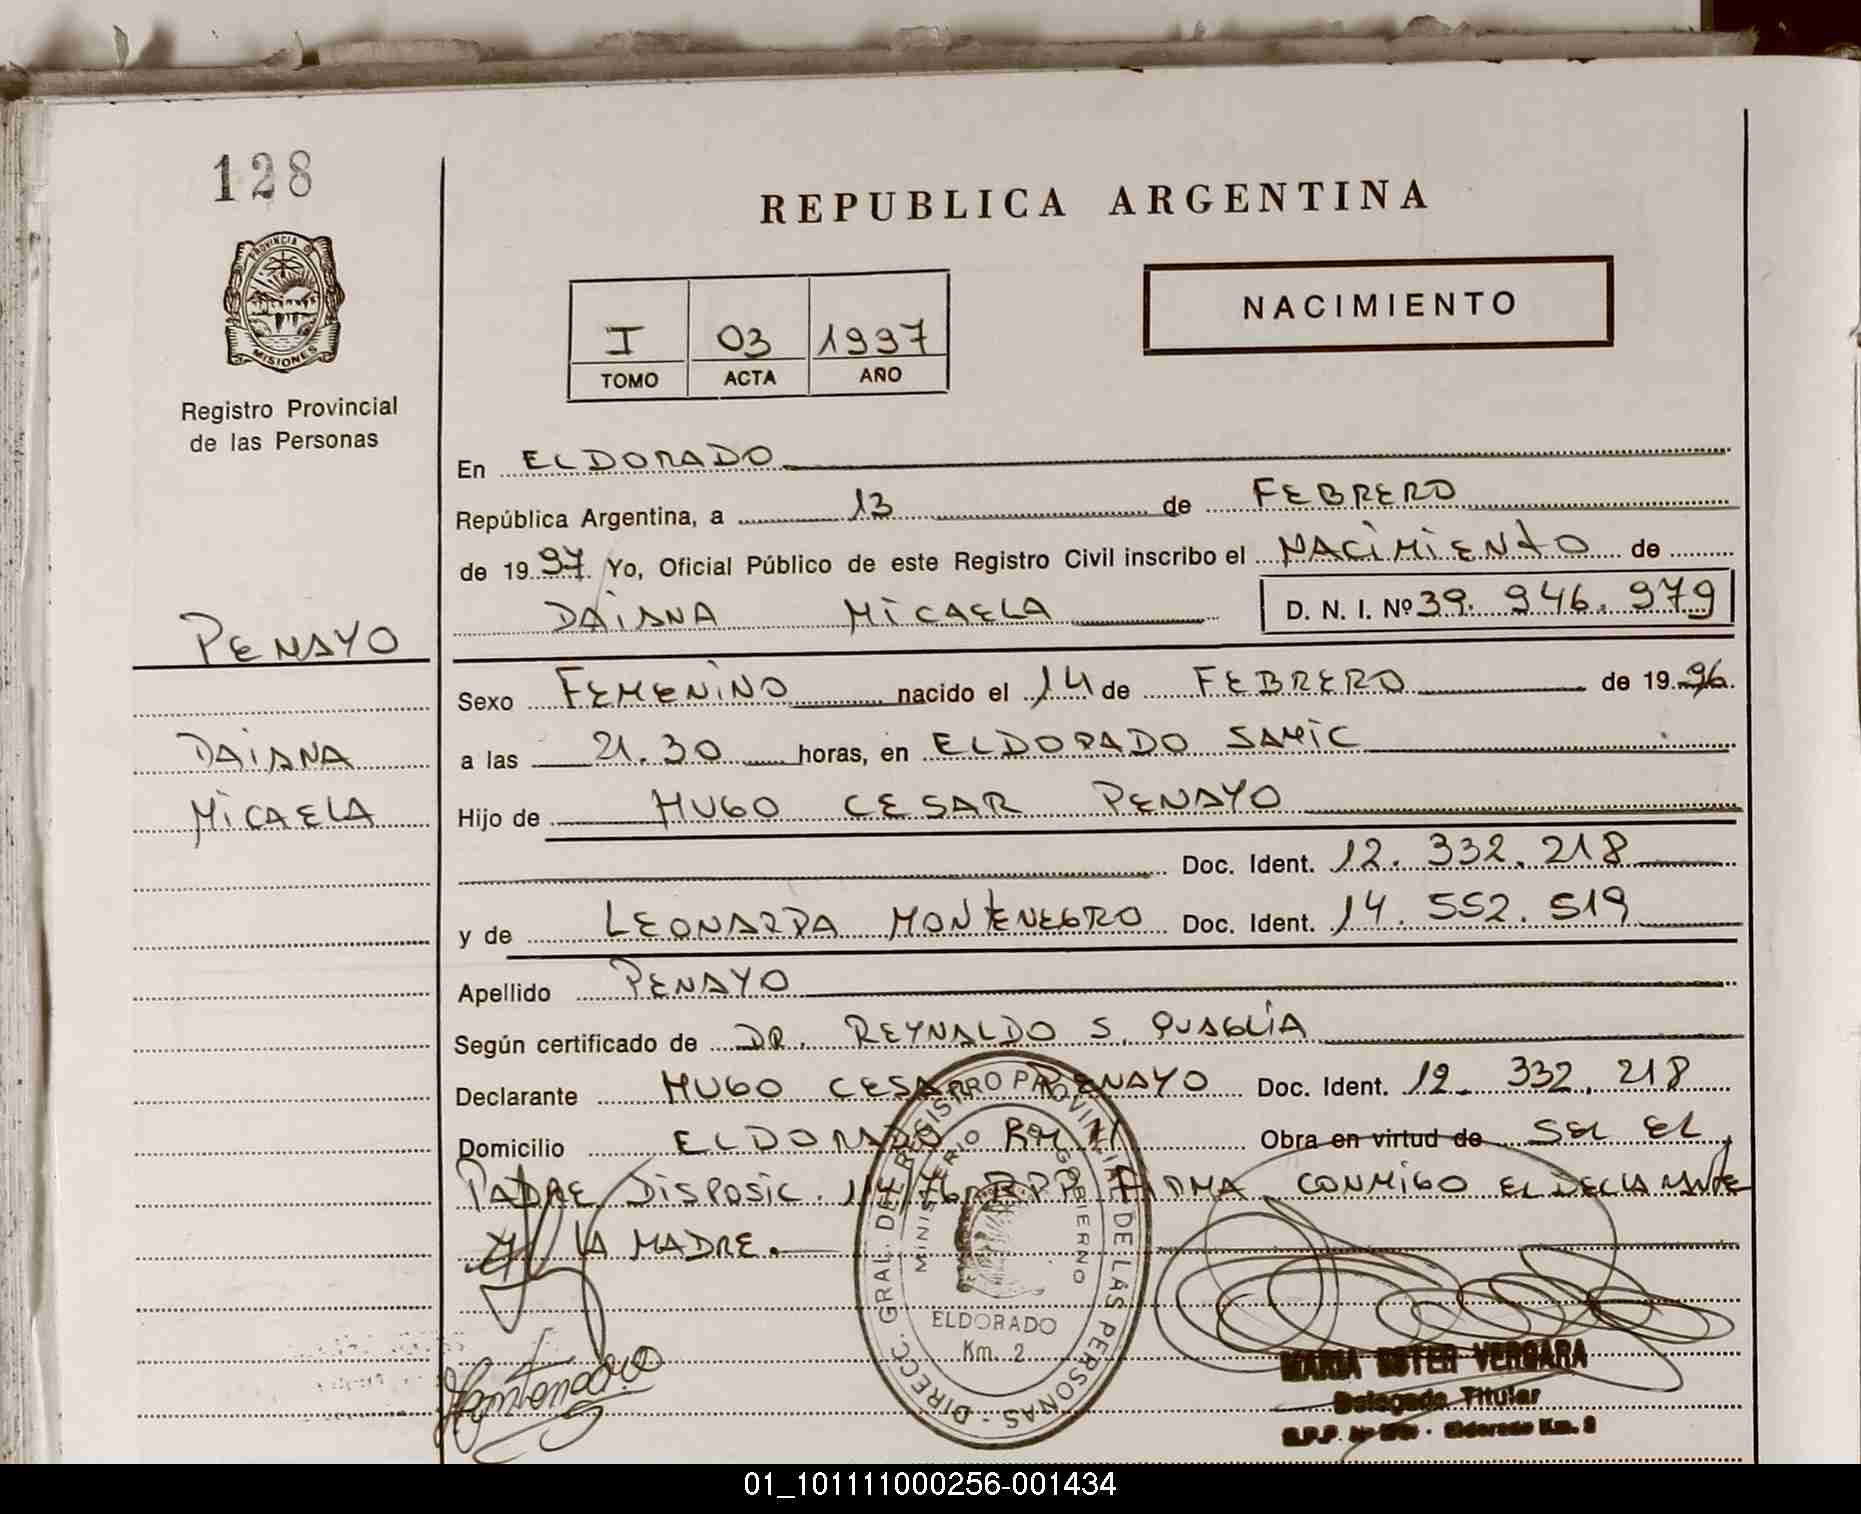 128
REPUBLICA ARGENTINA
PROVINCIA DE
MISIONES
NACIMIENTO
I 03 1997
TOMO ACTA AÑO
Registro Provincial
de las Personas
En ELDORADO
República Argentina, a 13 de FEBRERO
de 1997 Yo, Oficial Público de este Registro Civil inscribo el NACIMIENTO de
DAIANA MICAELA D. N. I. Nº 39. 946. 979
PENAYO
Sexo FEMENINO nacido el 14 de FEBRERO de 1996.
DAIANA
a las 21.30 horas, en ELDORADO SAMIC
MICAELA
Hijo de HUGO CESAR PENAYO
Doc. Ident. 12. 332. 218
y de LEONARDA MONTENEGRO Doc. Ident. 14. 552. 519
Apellido PENAYO
Según certificado de DR. REYNALDO S. QUAGLIA
Declarante HUGO CESAR PENAYO Doc. Ident. 12. 332. 218
Domicilio ELDORADO KM 11 Obra en virtud de SER EL
PADRE DISPOSIC. RPP FIRMA CONMIGO EL DECLARANTE
Y LA MADRE.
DIRECC. GRAL. DEL REGISTRO PROVINCIAL DE LAS PERSONAS -
MINISTERIO DE GOBIERNO
ELDORADO
Km. 2
MARIA ESTER VERGARA
Delegada Titular
R.P.P. Eldorado Km. 2
01_101111000256-001434